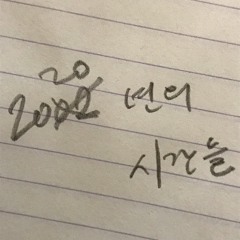 20
2002 년의
시간들